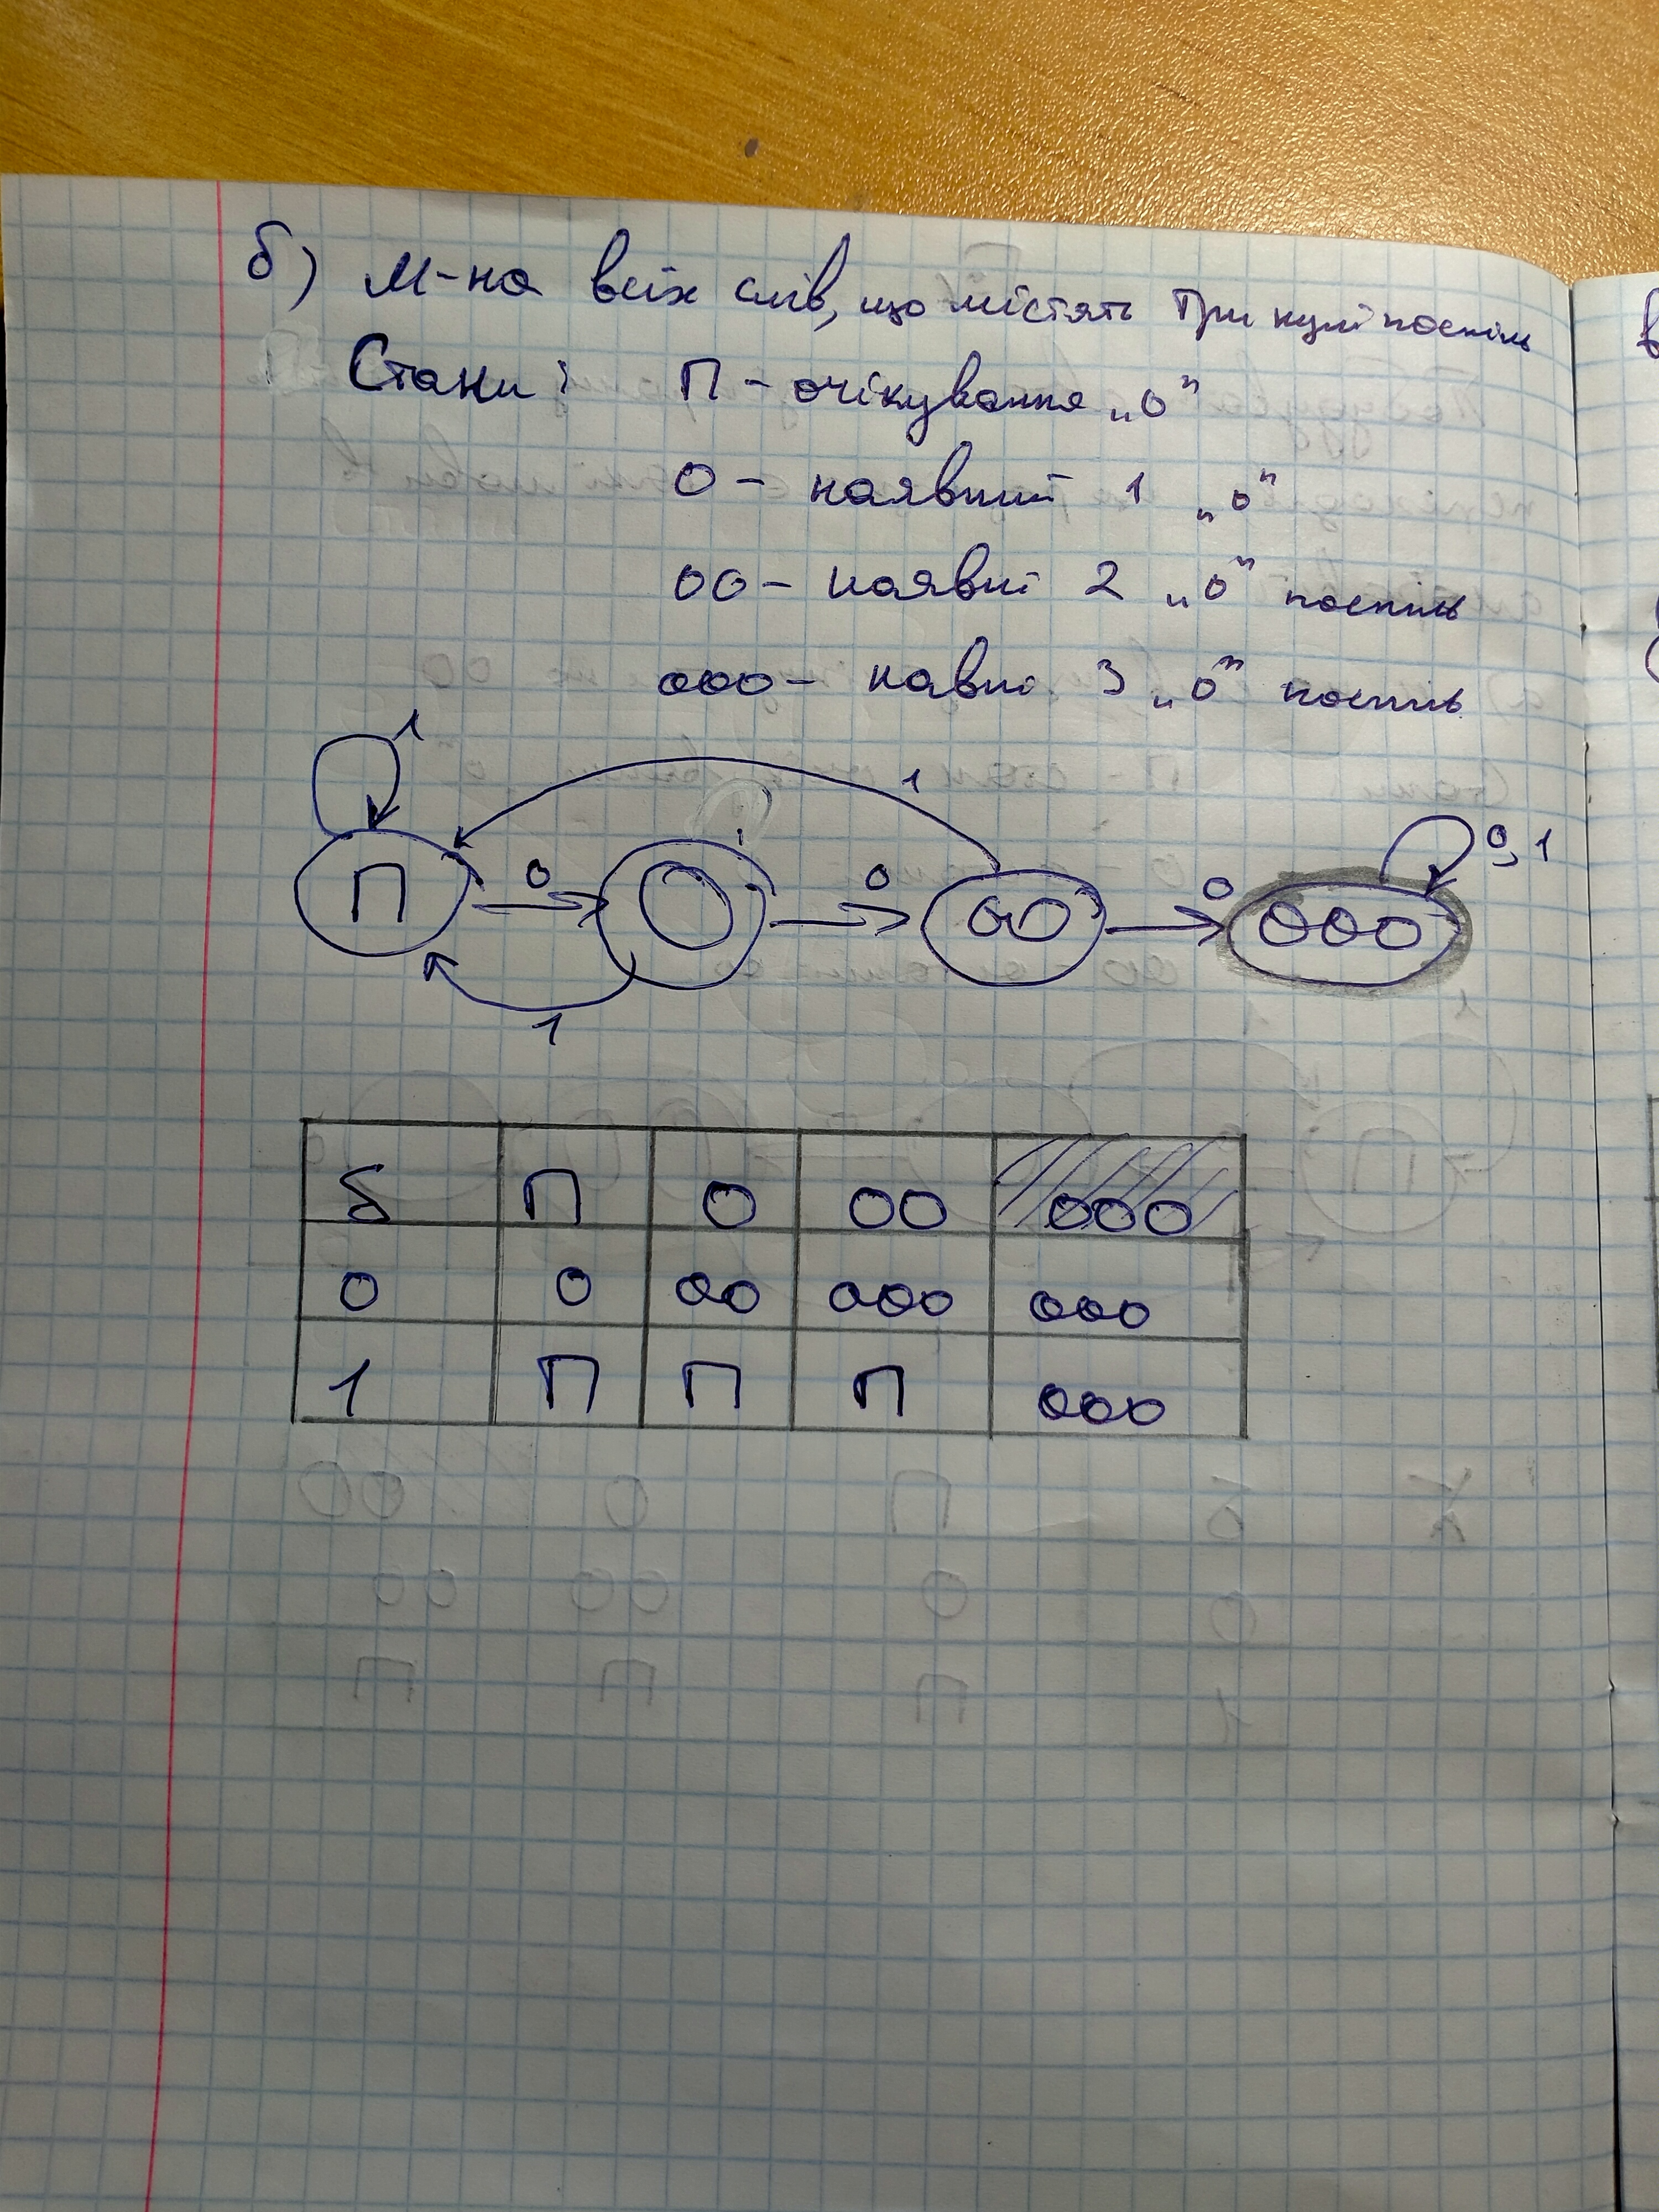 б) М-на всіх слів, що містять три нулі поспіль
Стани: П - очікування „0"
0 - наявний 1 „0"
00 - наявні 2 „0" поспіль
000 - навні 3 „0" поспіль
1
1
П 0 0 0 00 0 000 0,1
1
δ П 0 00 000
0 0 00 000 000
1 П П П 000